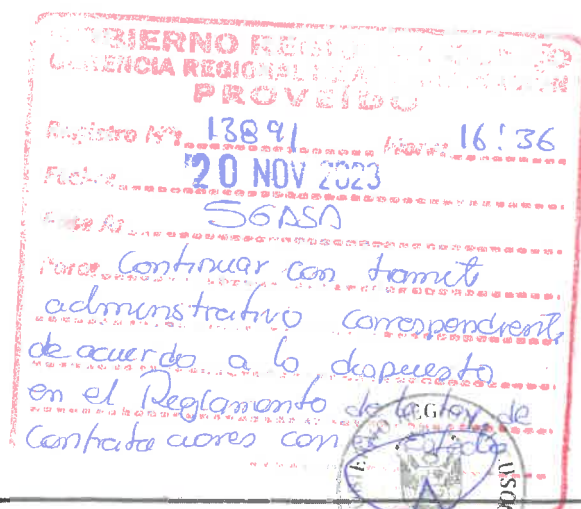 GOBIERNO REGI
GERENCIA REGIONAL
PROVEIDO
Registro Nº: 13891 Hora: 16:36
Fecha: 20 NOV 2023
Pase A: SGASA
Para: Continuar con tramite
administrativo correspondiente
de acuerdo a lo dispuesto
en el Reglamento de la Ley de
Contrataciones con el Estado